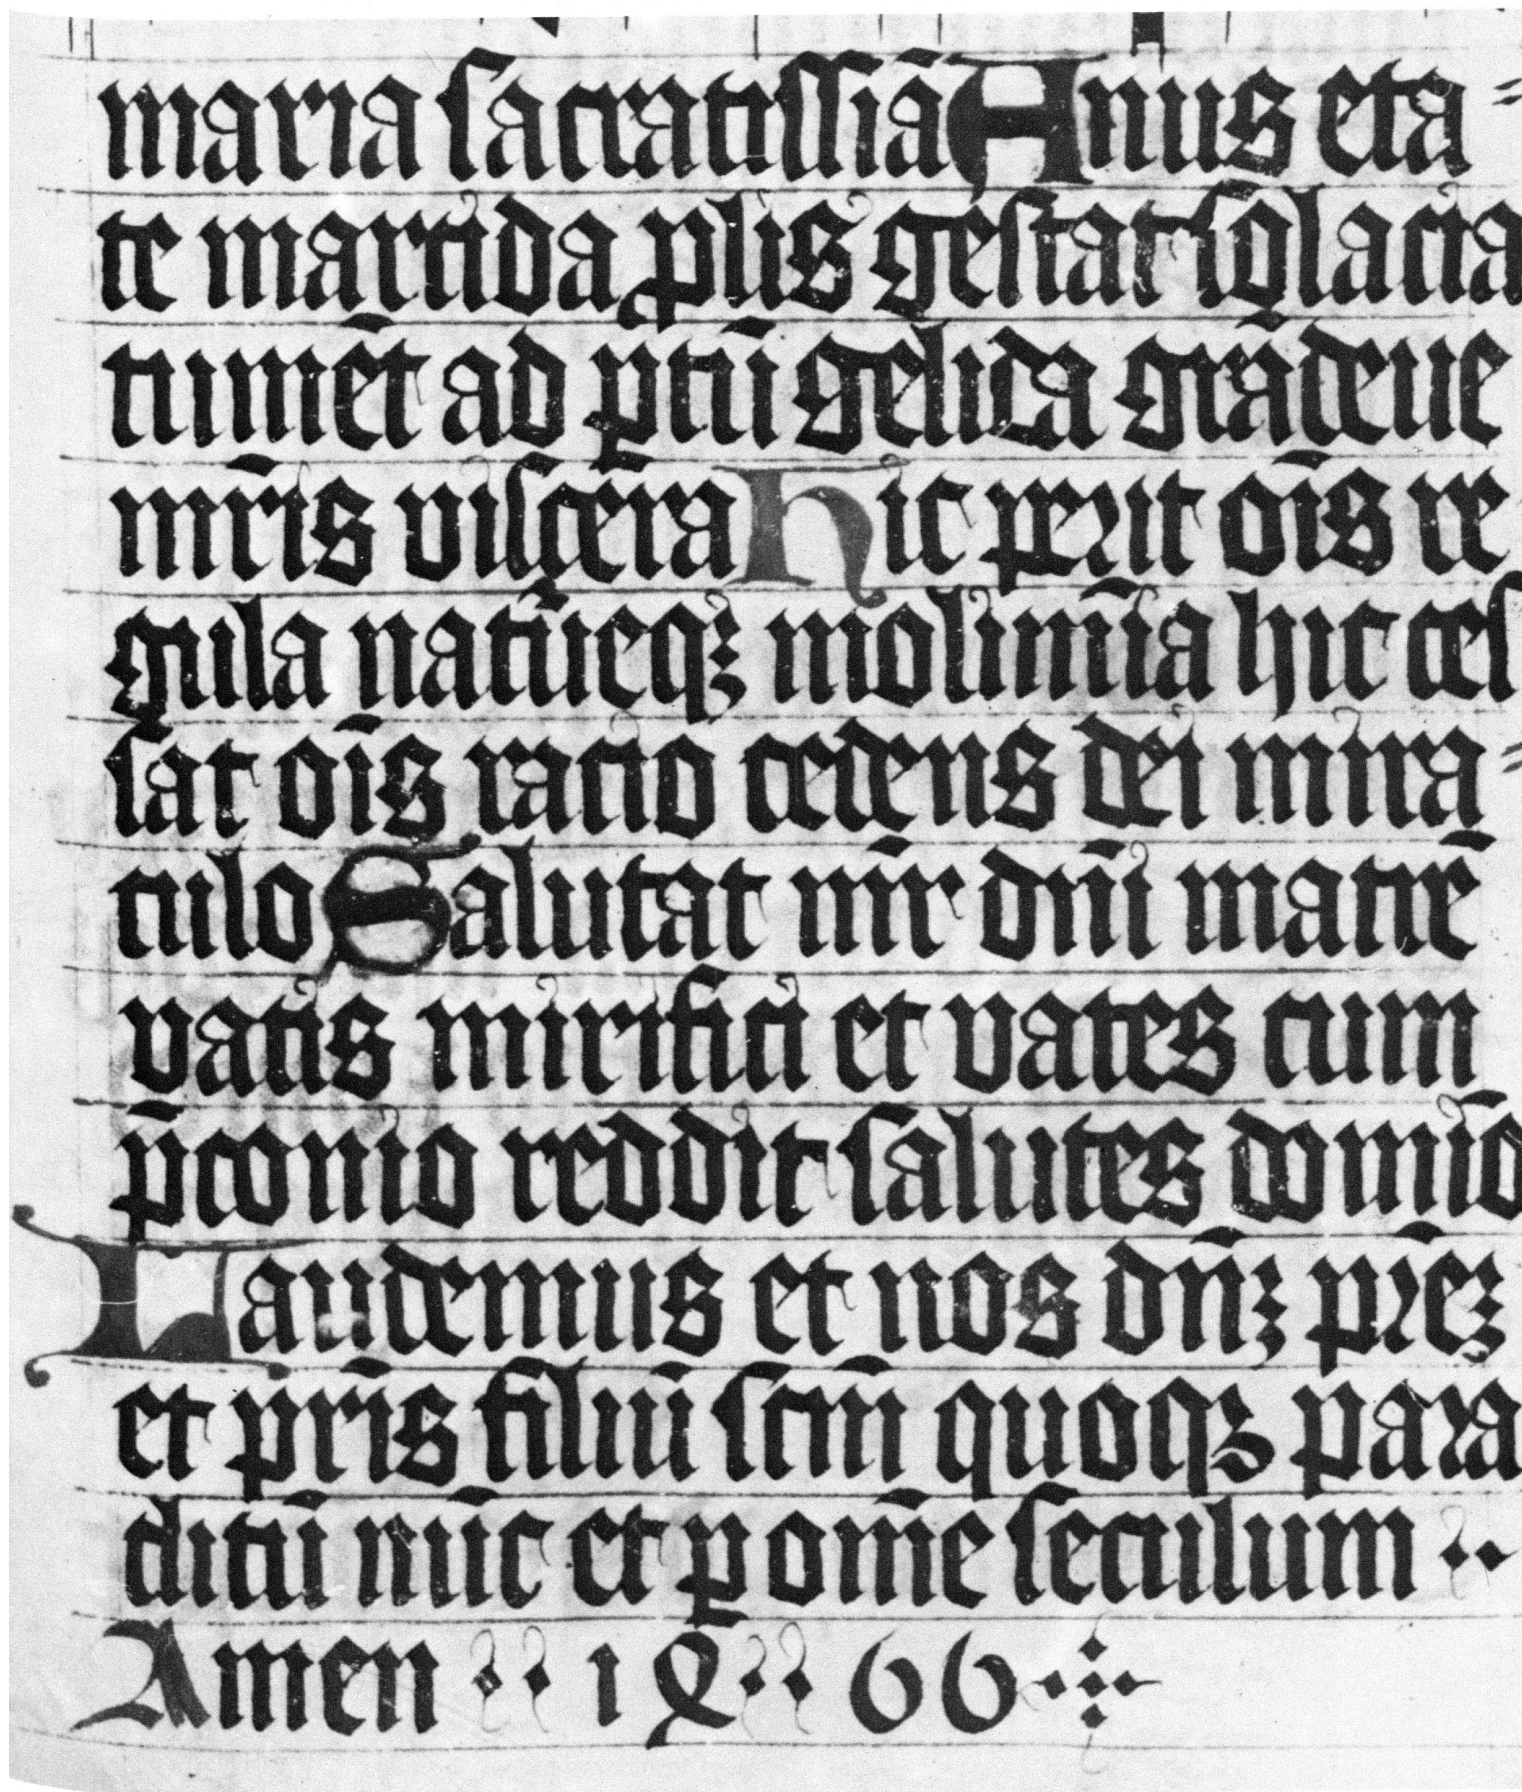 maria sacratissiā Anus eta⸗
te marcida ꝓlis gestat solacia
tumēt ad ꝑtū gelida grādeue
mr̄is viscera hic perit oīs re
gula natūeqꝫ molimīa hic ces
sat oīs racio cedens dei mira⸗
culo Salutat mr̄ dnī matrē
vatis mirifici et vates cum
p̄conio reddit salutes domīo
Laudemus et nos dn̄ꝫ pr̄eꝫ
et pr̄is filiū scm̄ quoqꝫ para
clitū nūc et ꝑ om̄e seculum ··
Amen ·· 1 ꝝ ·· 66 ·:·